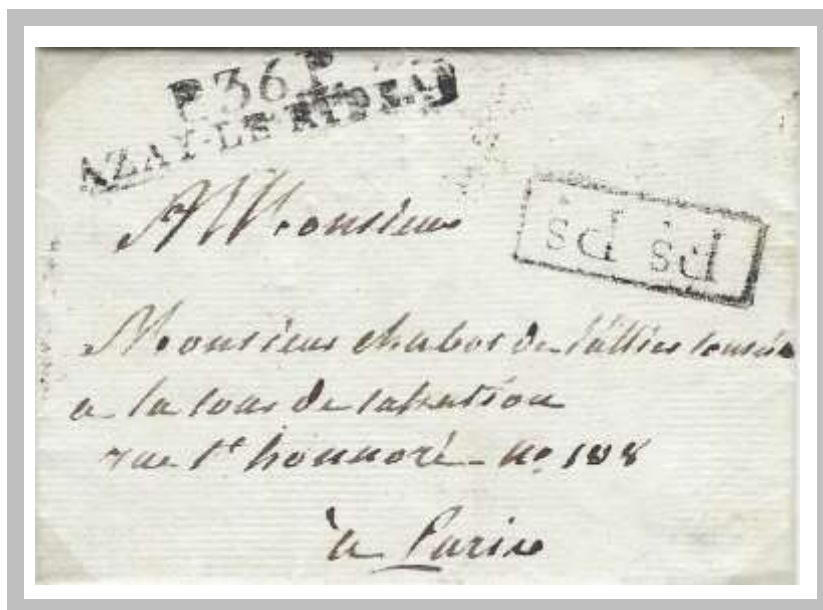 P.36.P.
AZAY-LE-RIDEAU
A Monsieur
Ps Ps
Monsieur chabot de l'allier
a la cour de cassation
rue St honnoré - no 108
à Paris